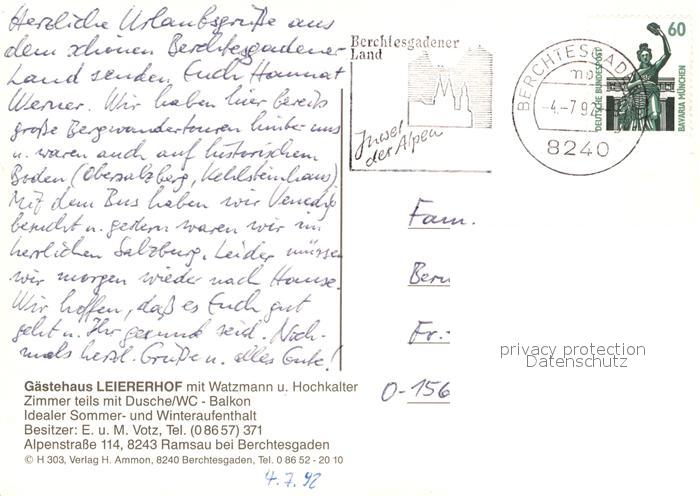 Herzliche Urlaubsgrüße aus
dem schönen Berchtesgadener
Land senden Euch Hanna t
Werner. Wir haben hier bereits
große Bergwandertouren hinter uns
u. waren auch auf historischem
Boden (Obersalzberg, Kehlsteinhaus)
Mit dem Bus haben wir Venedig
besucht u. gestern waren wir im
herrlichen Salzburg. Leider müssen
wir morgen wieder nach Hause.
Wir hoffen, daß es Euch gut
geht u. Ihr gesund seid. Noch-
mals herzl. Grüße u. alles Gute!
Berchtesgadener
Land
Insel
der Alpen
BERCHTESGAD
mb
-4.-7.92
8240
60
DEUTSCHE BUNDESPOST
BAVARIA MÜNCHEN
Fam.
Bern
Fr.-
O-156
privacy protection
Datenschutz
Gästehaus LEIERERHOF mit Watzmann u. Hochkalter
Zimmer teils mit Dusche/WC - Balkon
Idealer Sommer- und Winteraufenthalt
Besitzer: E. u. M. Votz, Tel. (0 86 57) 371
Alpenstraße 114, 8243 Ramsau bei Berchtesgaden
© H 303, Verlag H. Ammon, 8240 Berchtesgaden, Tel. 0 86 52 - 20 10
4.7.92